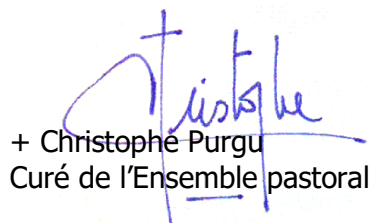 Christophe
+ Christophe Purgu
Curé de l'Ensemble pastoral